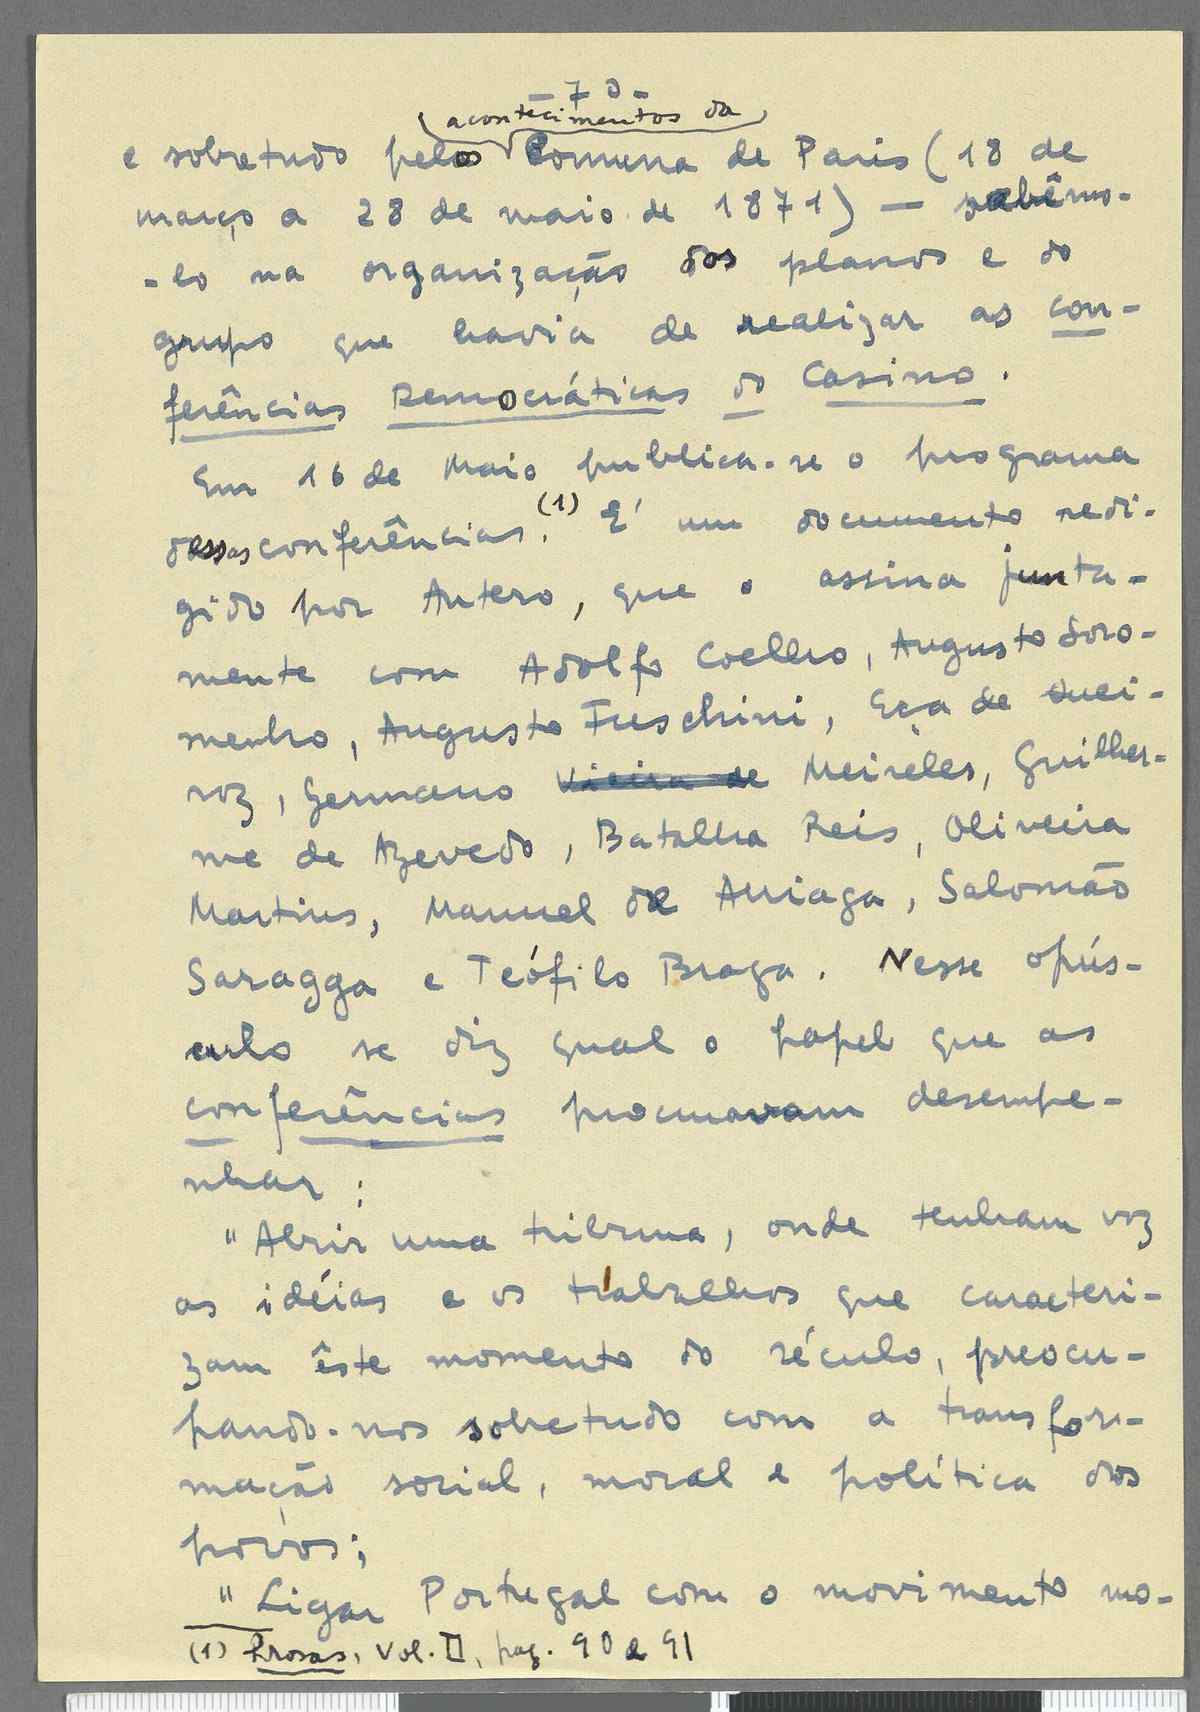 - 70 -
acontecimentos da
e sobretudo pelos Comuna de Paris (18 de
março a 28 de maio de 1871) — sabêmo-
-lo na organização dos planos e do
grupo que havia de realizar as con-
ferências Democráticas do Casino.
Em 16 de Maio publica-se o programa
dessas conferências.(1) É um documento redi-
gido por Antero, que o assina junta-
mente com Adolfo Coelho, Augusto Soro-
menho, Augusto Fuschini, Eça de Quei-
roz, Germano Vieira de Meireles, Guilher-
me de Azevedo, Batalha Reis, Oliveira
Martins, Manuel de Arriaga, Salomão
Saragga e Teófilo Braga. Nesse opús-
culo se diz qual o papel que as
conferências procuravam desempe-
nhar:
"Abrir uma tribuna, onde tenham voz
as idéias e os trabalhos que caracteri-
zam êste momento do século, preocu-
pando-nos sobretudo com a transfor-
mação social, moral e política dos
povos;
"Ligar Portugal com o movimento mo-
(1) Prosas, Vol. II, pag. 90 e 91